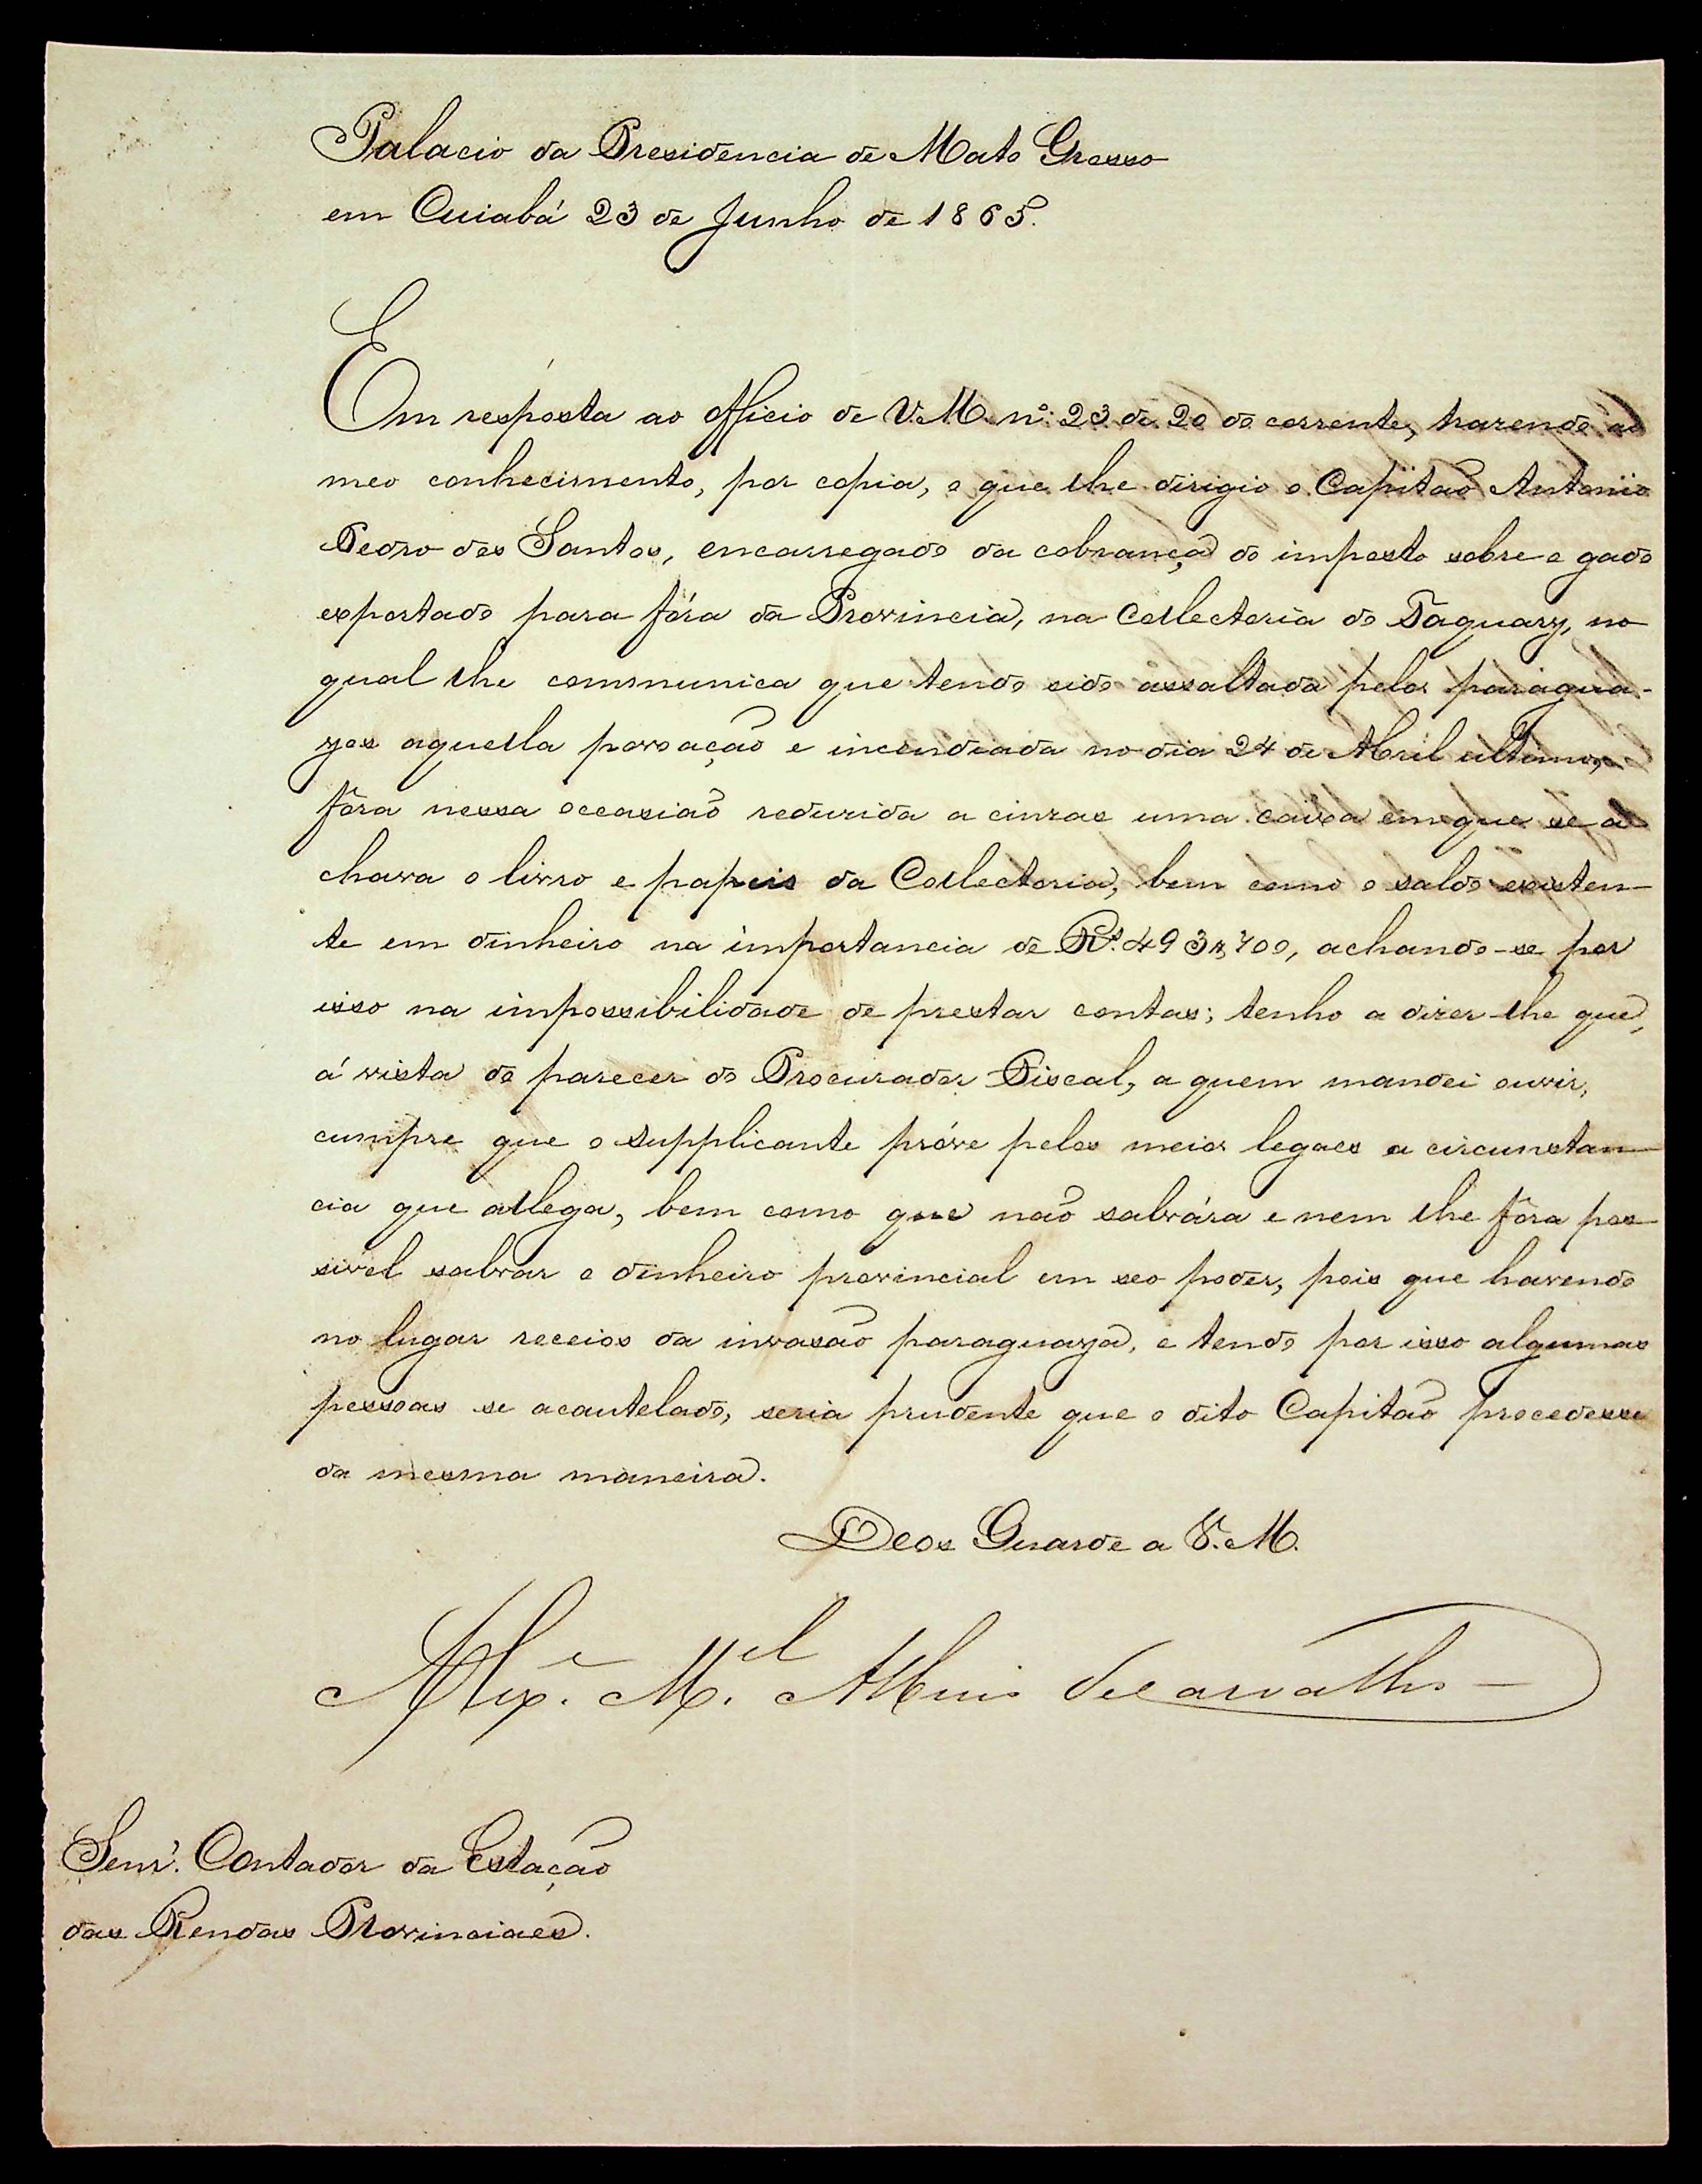 Palacio da Presidencia de Mato Grosso
em Cuiabá 23 de Junho de 1865.
Em resposta ao officio de V. M. nº. 23 de 20 do corrente, trazendo ao
meo conhecimento, por copia, o que lhe dirigio o Capitaõ Antonio
Pedro dos Santos, encarregado da cobrança do imposto sobre o gado
exportado para fóra da Provincia, na Collectoria do Taquary, no
qual lhe communica que tendo sido assaltada pelos paragua-
yos aquella povoaçaõ e incendiada no dia 24 de Abril ultimo,
fôra nessa occasiaõ reduzida a cinzas uma caixa em que se a
chava o livro e papeis da Collectoria, bem como o saldo existen-
te em dinheiro na importancia de Rs. 493$700, achando-se por
isso na impossibilidade de prestar contas; tenho a dizer-lhe que,
á vista do parecer do Procurador Fiscal, a quem mandei ouvir,
cumpre que o supplicante próve pelos meios legaes a circunstan-
cia que allega, bem como que naõ salvára e nem lhe fôra pos-
sivel salvar o dinheiro provincial em seo poder, pois que havendo
no lugar receios da invasaõ paraguaya, e tendo por isso algumas
pessoas se acautelado, seria prudente que o dito Capitaõ procedesse
da mesma maneira.
Deos Guarde a V. M.
Alexe. Mel. Albino de Carvalho
Senr. Contador da Estaçaõ
das Rendas Provinciaes.